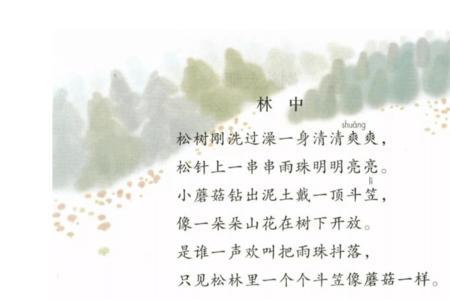 林中
shuāng
松树刚洗过澡一身清清爽爽，
松针上一串串雨珠明明亮亮。
lì
小蘑菇钻出泥土戴一顶斗笠，
像一朵朵山花在树下开放。
是谁一声欢叫把雨珠抖落，
只见松林里一个个斗笠像蘑菇一样。